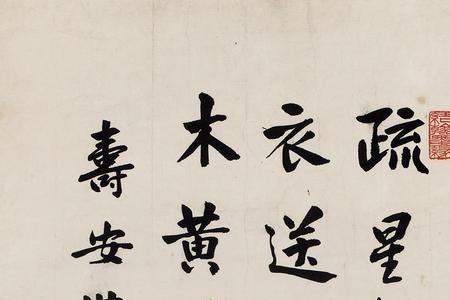 疏星
衣送
木黄
壽安